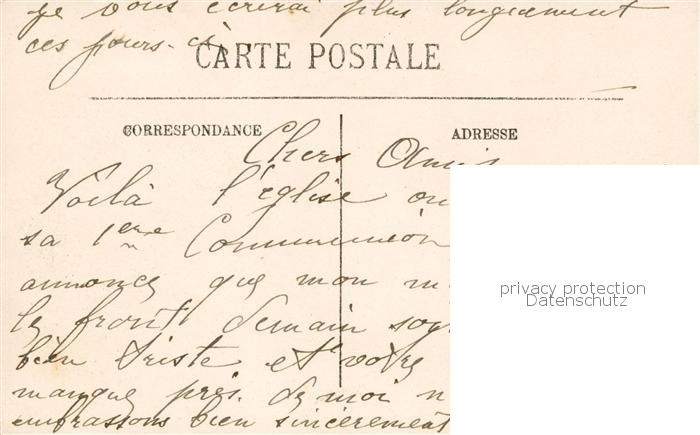 je vous écrirai plus longuement
ces jours-ci.
CARTE POSTALE
CORRESPONDANCE
ADRESSE
Chers Amis
Voilà l'église
sa 1ère Communion
annonce que mon
le front demain
bien triste et votre
manque près de moi
embrassons bien sincèrement
privacy protection
Datenschutz